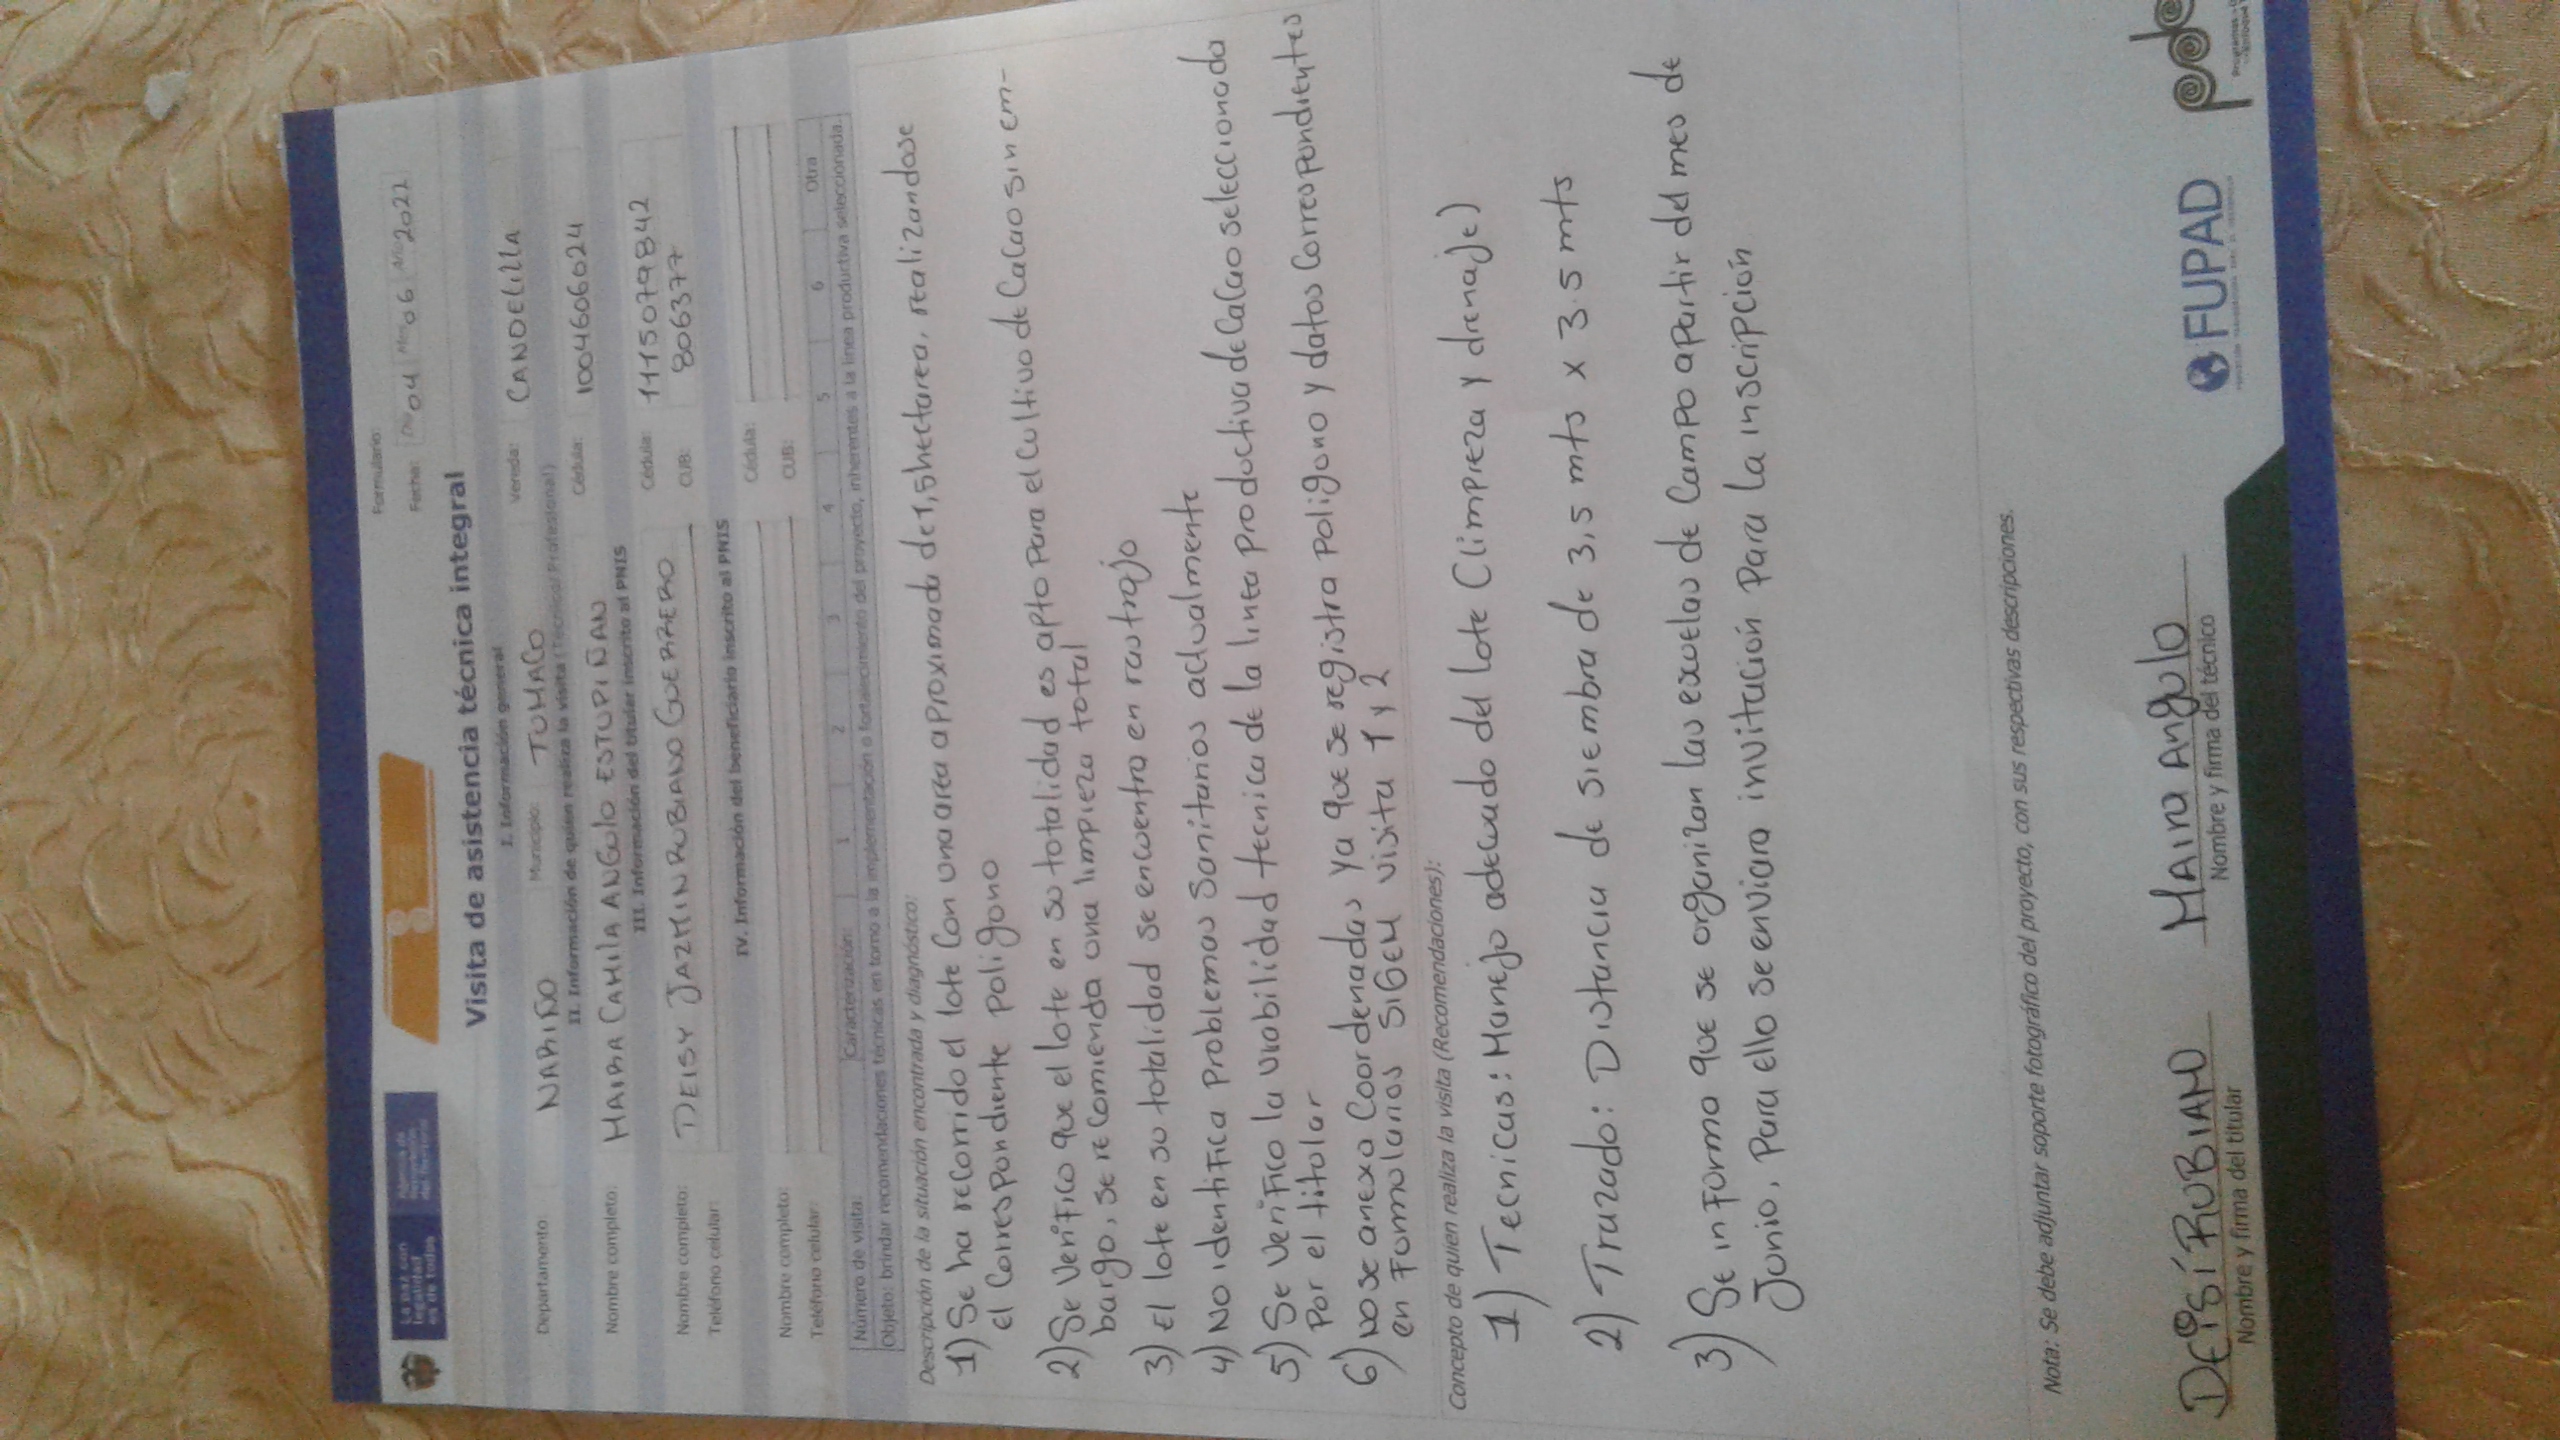 La paz con
legalidad
es de todos
Agencia de
Renovación
del Territorio
Formulario:
Fecha: Día 04 Mes 06 Año 2022
Visita de asistencia técnica integral
I. Información general
Departamento: NARIÑO Municipio: TUMACO Vereda: CANDELILLA
II. Información de quien realiza la visita (Técnico/ Profesional)
Nombre completo: MAIRA CAMILA ANGULO ESTUPIÑAN Cédula: 1004606624
III. Información del titular inscrito al PNIS
Nombre completo: DEISY JAZMIN RUBIANO GUERRERO Cédula: 1115079842
Teléfono celular: CUB: 806377
IV. Información del beneficiario inscrito al PNIS
Nombre completo: Cédula:
Teléfono celular: CUB:
Número de visita: Caracterización: 1 2 3 4 5 6 Otra
Objeto: brindar recomendaciones técnicas en torno a la implementación o fortalecimiento del proyecto, inherentes a la línea productiva seleccionada.
Descripción de la situación encontrada y diagnóstico:
1) Se ha recorrido el lote Con una area aproximada de 1,5 hectarea, realizandose
el Correspondiente poligono
2) Se Verifico que el lote en su totalidad es apto Para el Cultivo de Cacao sin em-
bargo, se recomienda una limpieza total
3) El lote en su totalidad se encuentra en rastrojo
4) No identifica Problemas Sanitarios actualmente
5) Se Verifico la viabilidad tecnica de la linea productiva de Cacao seleccionada
Por el titular
6) No se anexa Coordenadas ya que se registra Poligono y datos Correspondientes
en Formularios SIGEM Visita 1 y 2
Concepto de quien realiza la visita (Recomendaciones):
1) Tecnicas: Manejo adecuado del lote Climpieza y drenaje)
2) Trazado: Distancia de siembra de 3,5 mts x 3.5 mts
3) Se informa que se organizan las escuelas de Campo apartir del mes de
Junio, Para ello se enviara invitación Para la inscripción
Nota: Se debe adjuntar soporte fotográfico del proyecto, con sus respectivas descripciones.
DEISÍ RUBIANO
Nombre y firma del titular
Maira Angulo
Nombre y firma del técnico
FUPAD